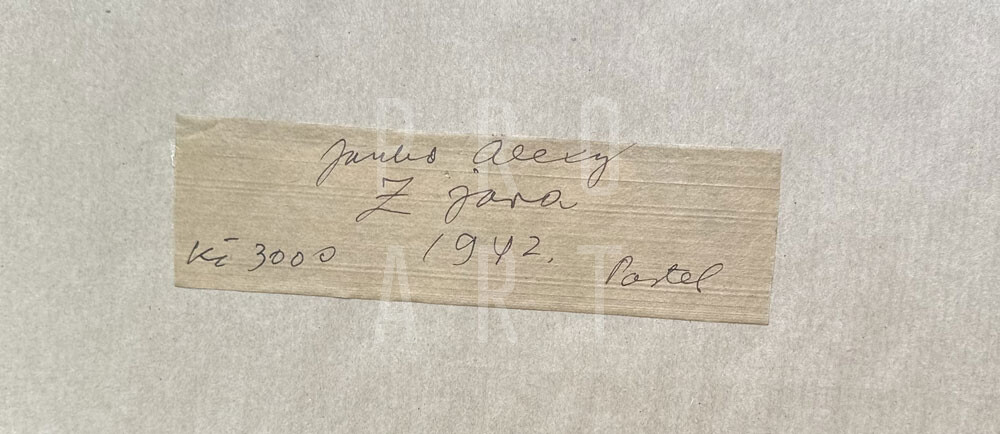 Janko Alexy
Z jara
1942.
Kč 3000
Pastel
DRC
ART